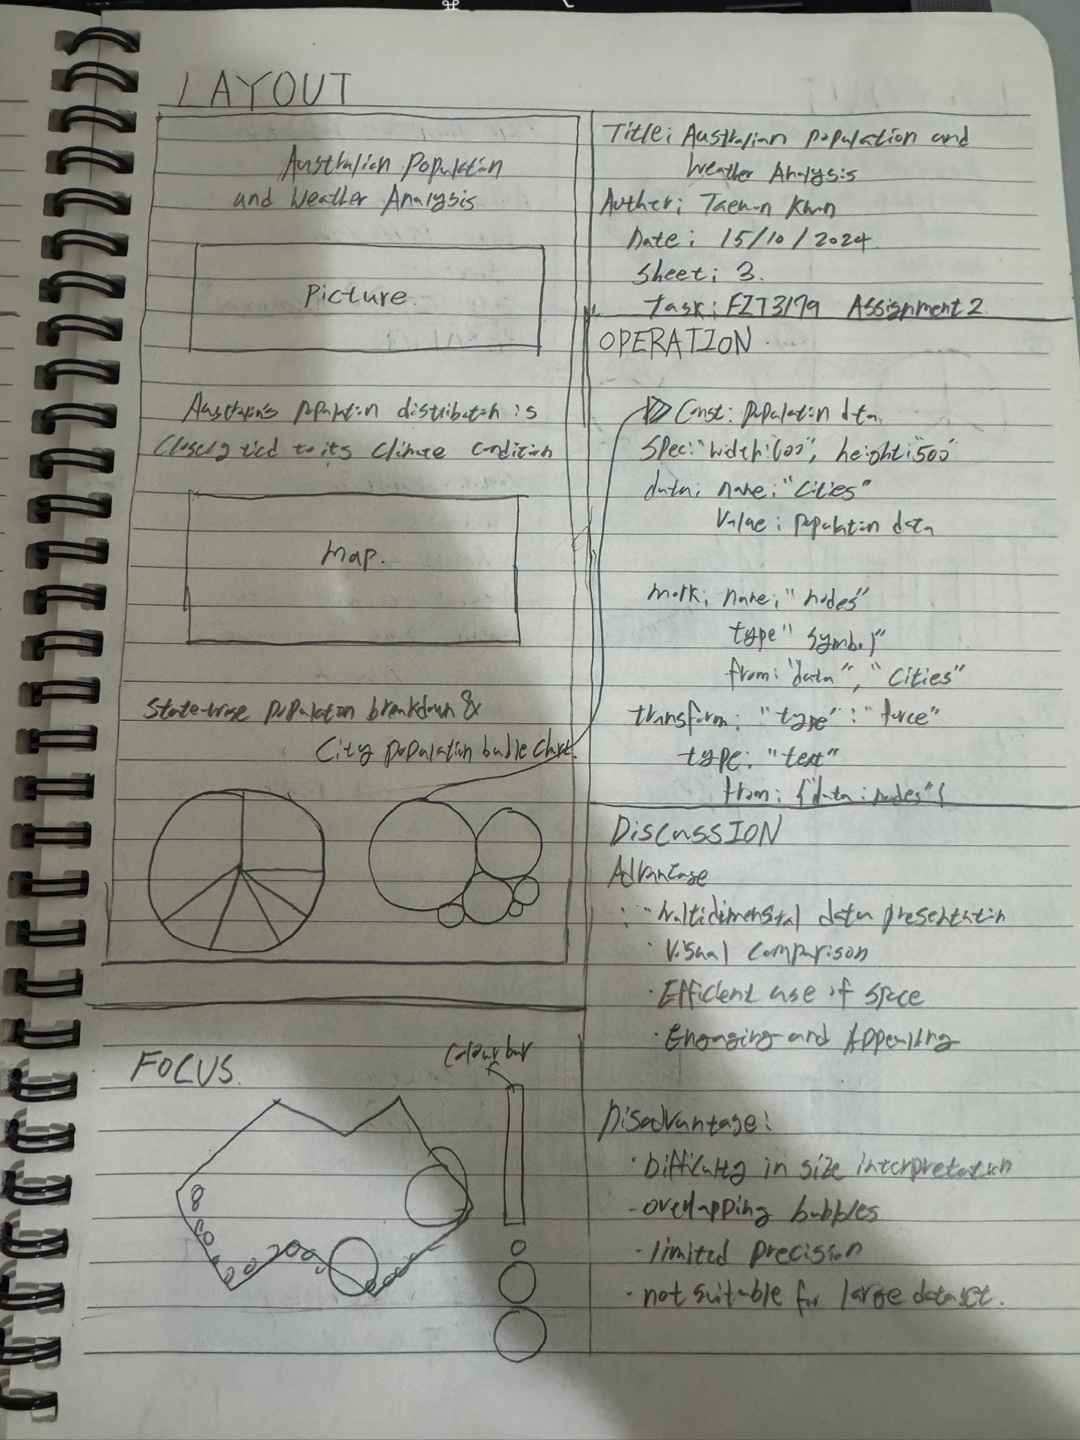 LAYOUT
Australian Population
and Weather Analysis
Picture.
Australia's population distribution is
closely tied to its climate condition
Map.
State-wise population breakdown &
City population bubble chart.
FOCUS.
Colour bar
Title: Australian population and
Weather Analysis
Author:
Date: 15/10/2024.
Sheet: 3.
Task: FIT3179 Assignment 2
OPERATION
Const: population data
Spec: "width: 600", height: 500"
data: name: "Cities"
Value: population data
mark: name: "nodes"
type" symbol"
from: "data", "Cities"
transform: "type": "force"
type: "text"
from: {"data: nodes"{
DISCUSSION
Advantage
· Multidimensional data presentation
· Visual comparison
· Efficient use of space
· Engaging and Appealing
Disadvantage:
· Difficulty in size interpretation
- overlapping bubbles
· limited precision
· not suitable for large dataset.